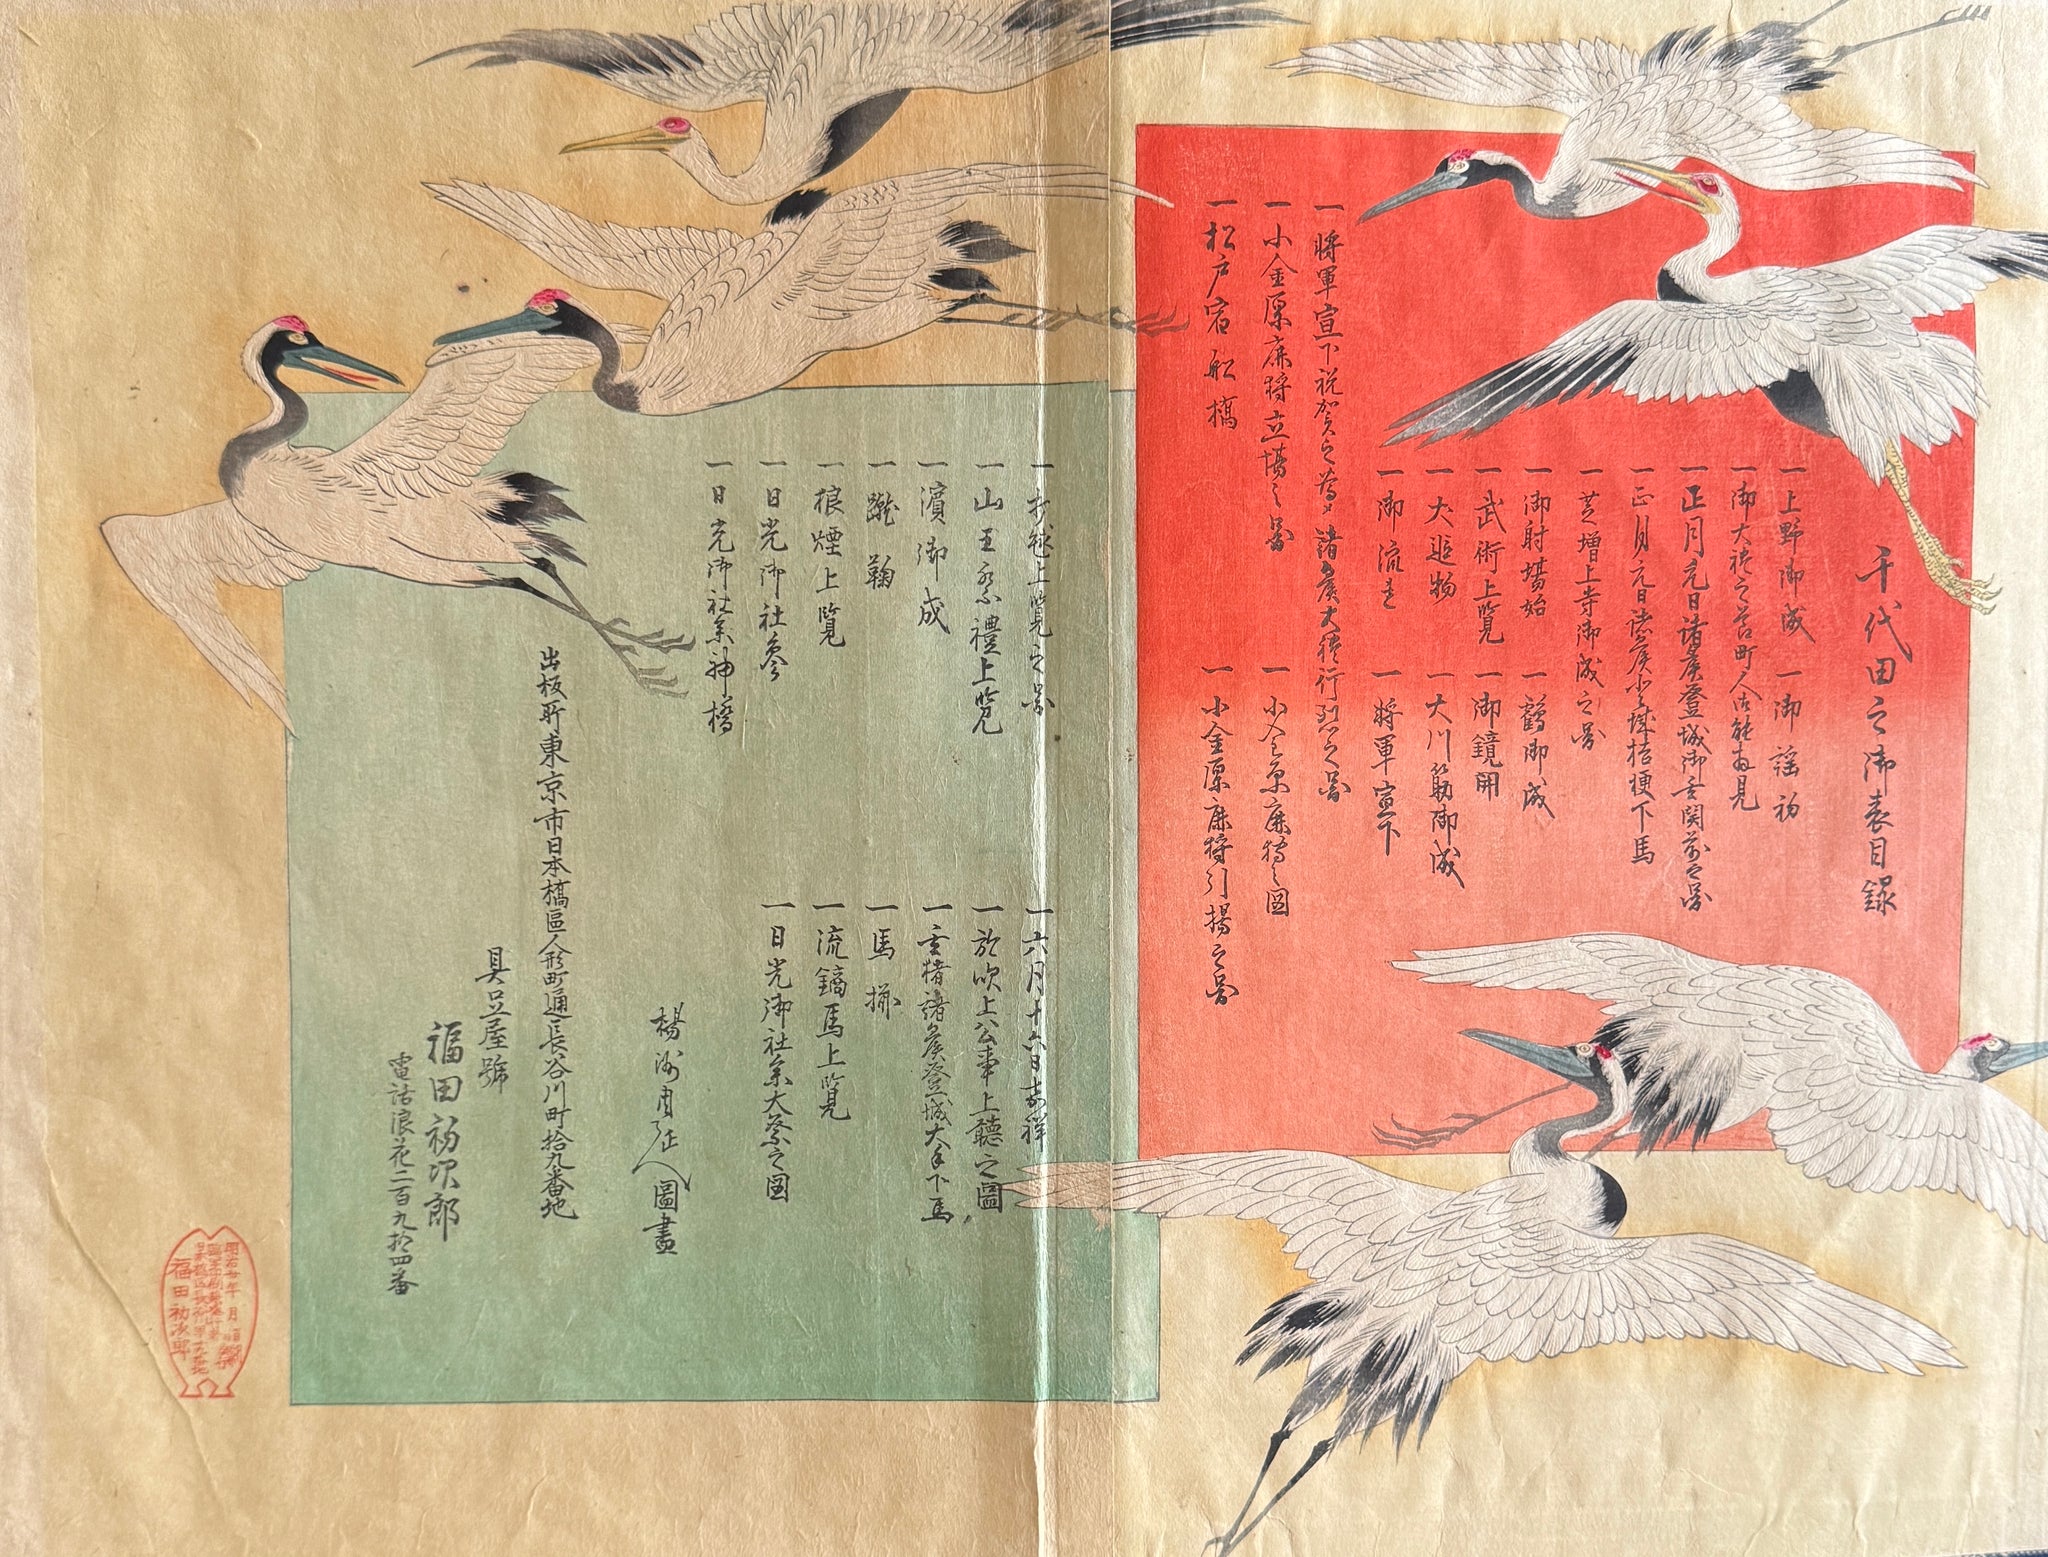 千代田之御表目録
一上野御成
一御謡初
一御大禮之節町人御能拝見
一正月元日諸侯登城御玄関前之図
一正月元日諸侯登城桔梗下馬
一芝増上寺御成之図
一御射場始
一鶴御成
一武術上覧
一御鏡開
一犬追物
一大川筋御成
一御流れ
一将軍宣下
一将軍宣下祝賀之為メ諸侯大禮行列之図
一小金原鹿狩立場之図
一小金原鹿狩之図
一松戸宿船橋
一小金原鹿狩引揚之図
一打毬上覧之図
一六月十六日嘉祥
一山王祭禮上覧
一於吹上公事上聴之圖
一濱御成
一玄猪諸侯登城大手下馬
一蹴鞠
一馬揃
一狼煙上覧
一流鏑馬上覧
一日光御社参
一日光御社参大祭之図
一日光御社参神橋
楊洲周延画圖畫
出板所東京市日本橋區人形町通長谷川町拾九番地
具足屋號
福田初次郎
電話浪花二百九拾四番
福田初次郎